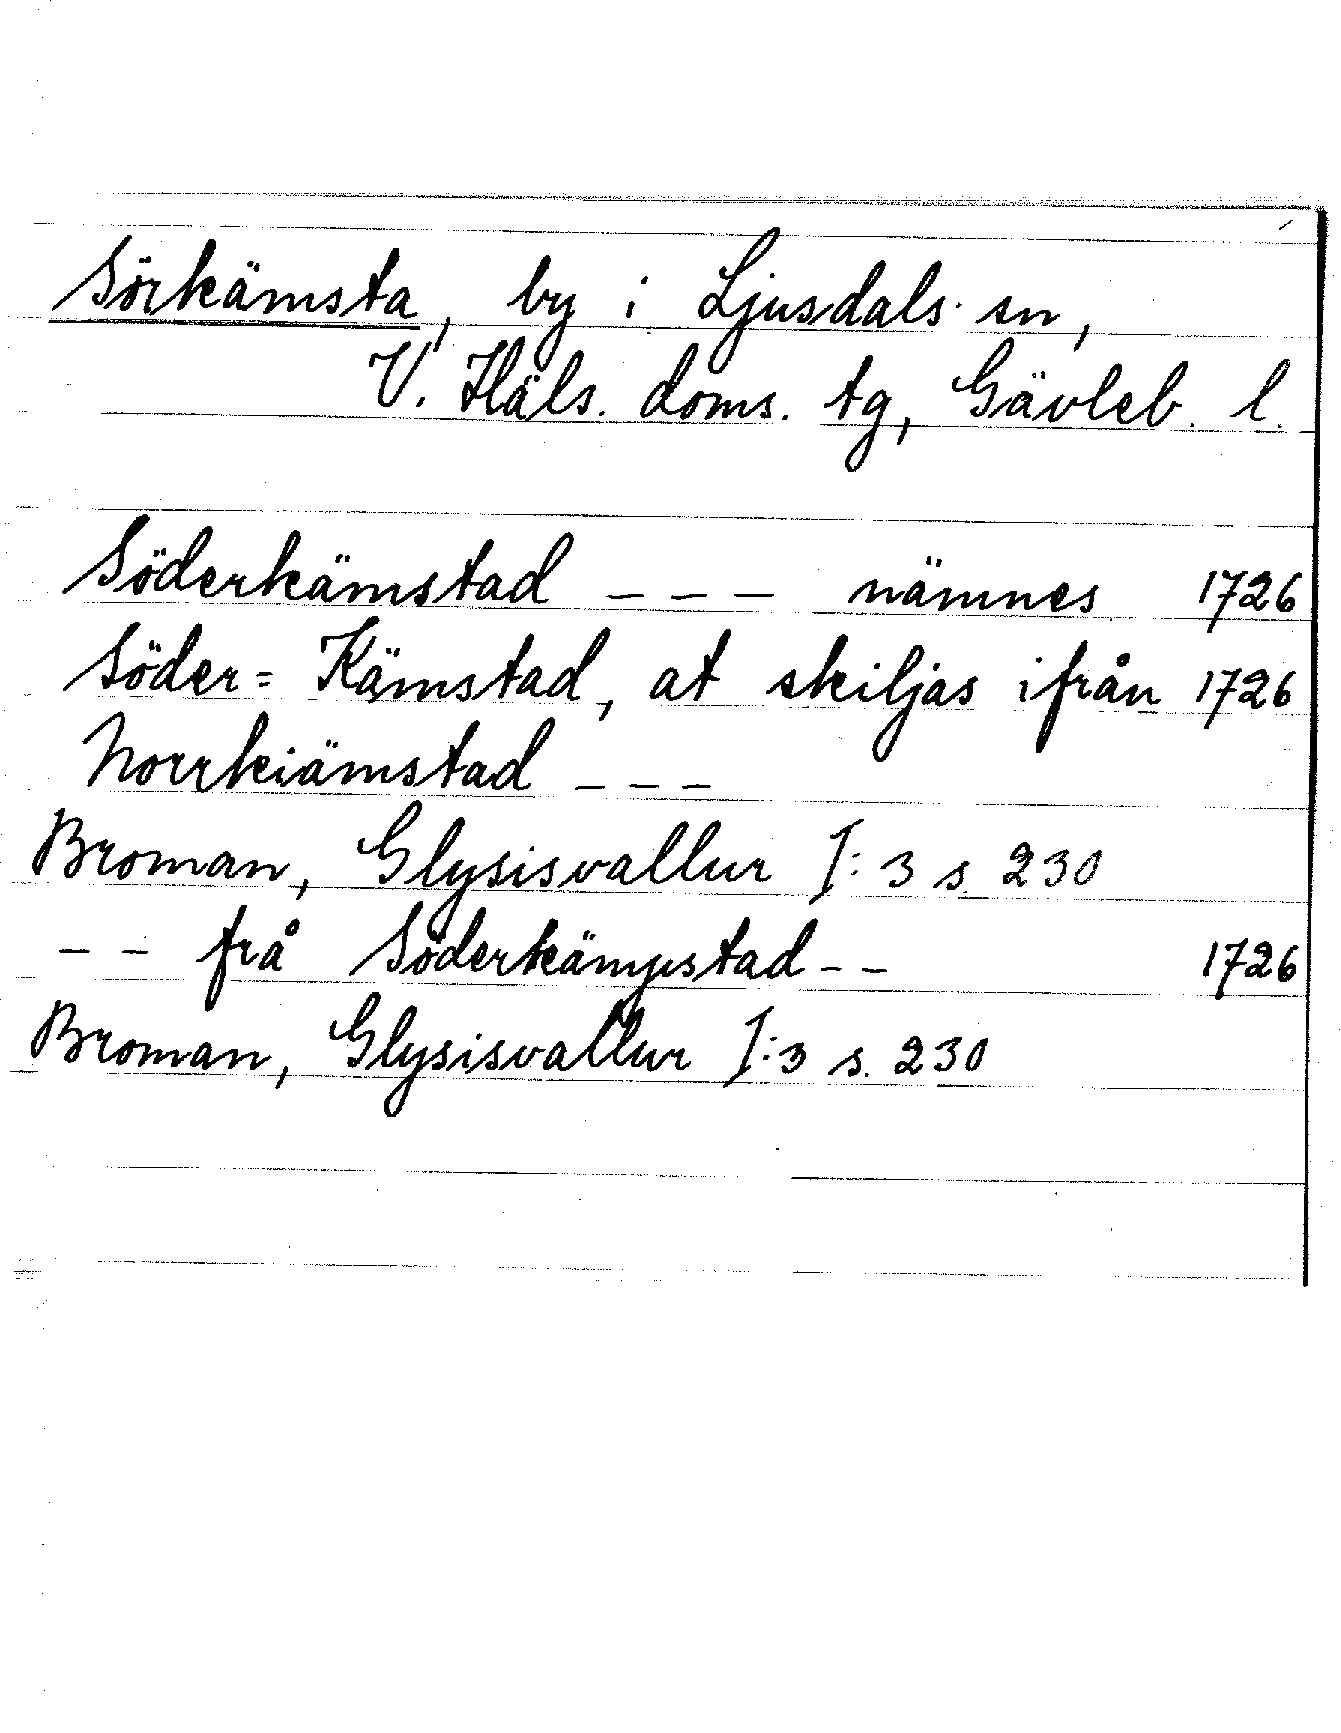 Sörkämsta, by i Ljusdals sn,
V. Häls. doms. tg, Gävleb. l.
Söderkämstad – – – nämnes 1726
Söder= Kämstad, at skiljas ifrån 1726
Norrkiämstad – – –
Broman, Glysisvallur I:3 s. 230
– – frå Söderkämpstad – – 1726
Broman, Glysisvallur I:3 s. 230